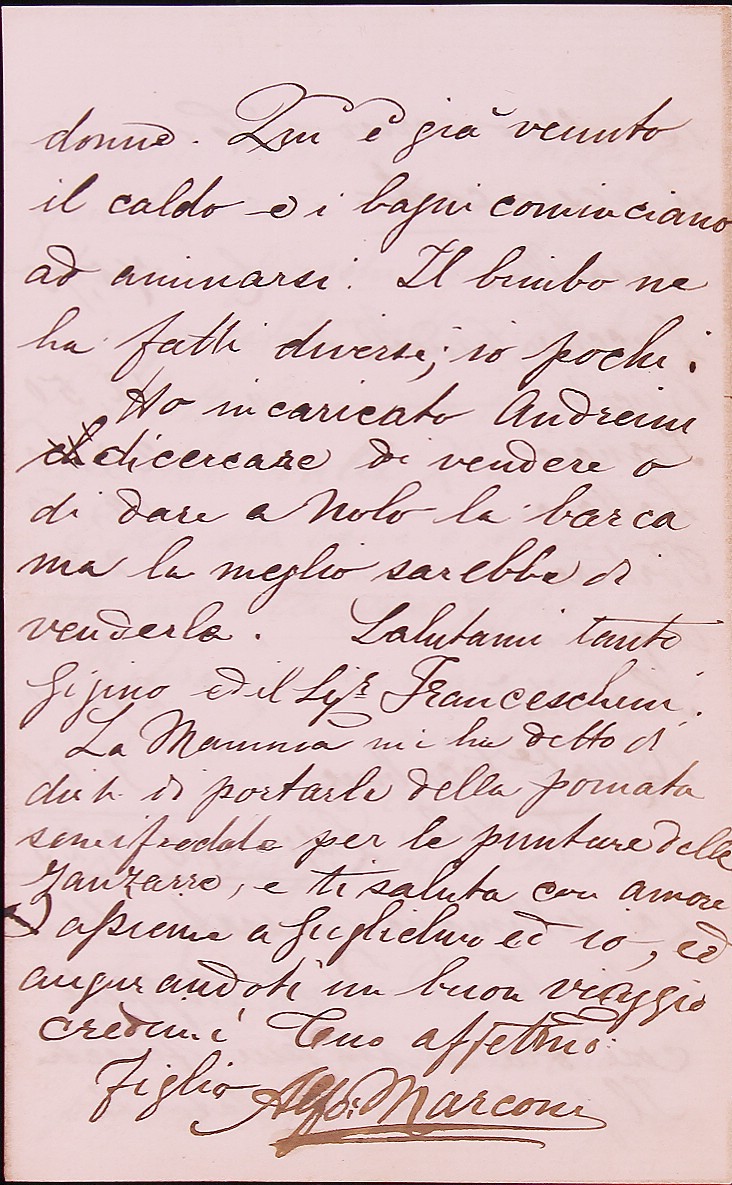 donne. Qui è già venuto
il caldo e i bagni cominciano
ad animarsi. Il bimbo ne
ha fatti diversi; io pochi.
Ho incaricato Andreini
di cercare di vendere o
di dare a nolo la barca
ma la meglio sarebbe di
venderla. Salutami tanto
Gigino ed il Sigr Franceschini.
La Mamma mi ha detto di
dirti di portarle della pomata
per le punture delle
zanzarre, e ti saluta con amore
assieme a Guglielmo ed io, ed
augurandoti un buon viaggio
credimi Tuo affetmo
figlio Alfo: Marconi